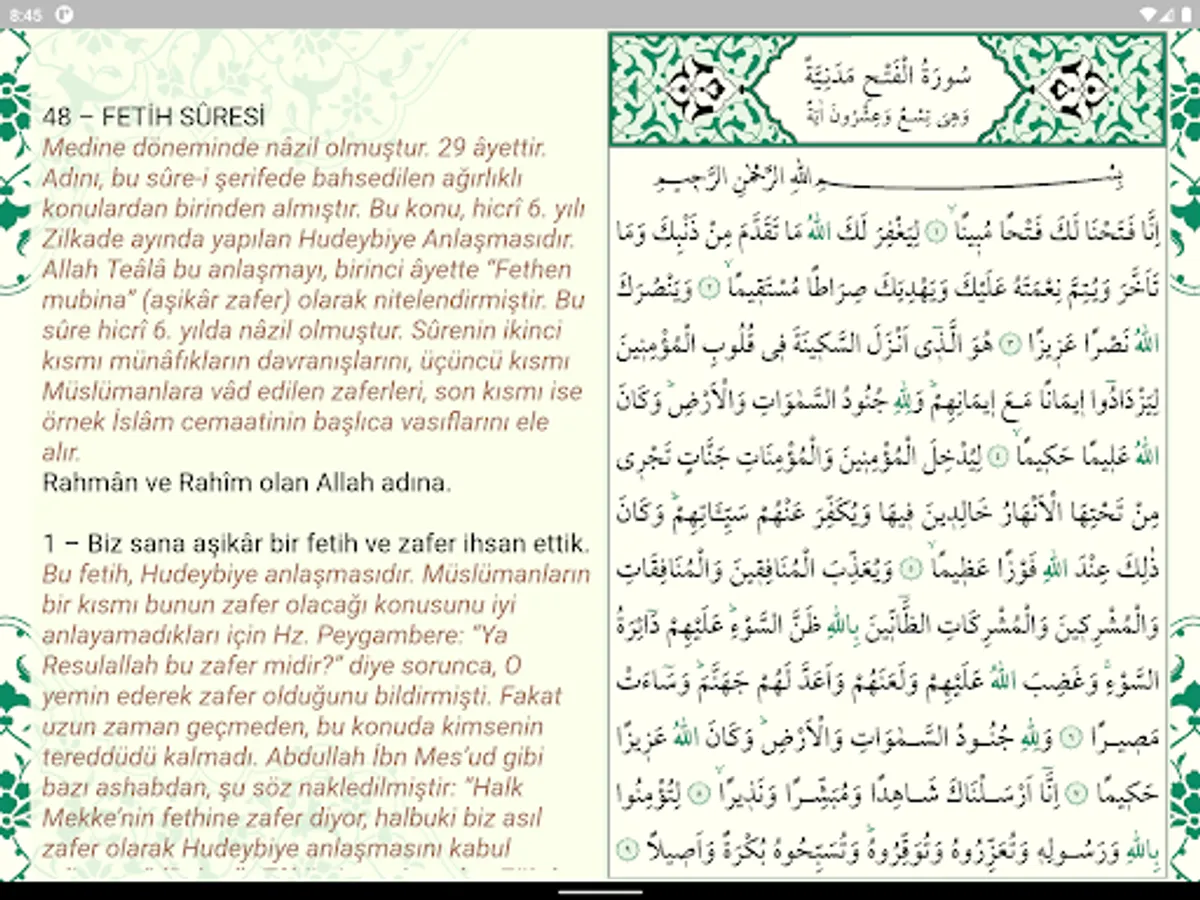 8:45
48 – FETİH SÛRESİ
Medine döneminde nâzil olmuştur. 29 âyettir.
Adını, bu sûre-i şerifede bahsedilen ağırlıklı
konulardan birinden almıştır. Bu konu, hicrî 6. yılı
Zilkade ayında yapılan Hudeybiye Anlaşmasıdır.
Allah Teâlâ bu anlaşmayı, birinci âyette “Fethen
mubina” (aşikâr zafer) olarak nitelendirmiştir. Bu
sûre hicrî 6. yılda nâzil olmuştur. Sûrenin ikinci
kısmı münâfıkların davranışlarını, üçüncü kısmı
Müslümanlara vâd edilen zaferleri, son kısmı ise
örnek İslâm cemaatinin başlıca vasıflarını ele
alır.
Rahmân ve Rahîm olan Allah adına.
1 – Biz sana aşikâr bir fetih ve zafer ihsan ettik.
Bu fetih, Hudeybiye anlaşmasıdır. Müslümanların
bir kısmı bunun zafer olacağı konusunu iyi
anlayamadıkları için Hz. Peygambere: “Ya
Resulallah bu zafer midir?” diye sorunca, O
yemin ederek zafer olduğunu bildirmişti. Fakat
uzun zaman geçmeden, bu konuda kimsenin
tereddüdü kalmadı. Abdullah İbn Mes’ud gibi
bazı ashabdan, şu söz nakledilmiştir: “Halk
Mekke’nin fethine zafer diyor, halbuki biz asıl
zafer olarak Hudeybiye anlaşmasını kabul
سُورَةُ الْفَتْحِ مَدَنِيَّةٌ
وَهِىَ تِسْعٌ وَعِشْرُونَ اٰيَةً
بِسْمِ اللّٰهِ الرَّحْمٰنِ الرَّحِيمِ
اِنَّا فَتَحْنَا لَكَ فَتْحًا مُبِينًا ﴿١﴾ لِيَغْفِرَ لَكَ اللّٰهُ مَا تَقَدَّمَ مِنْ ذَنْبِكَ وَمَا
تَاَخَّرَ وَيُتِمَّ نِعْمَتَهُ عَلَيْكَ وَيَهْدِيَكَ صِرَاطًا مُسْتَقِيمًا ﴿٢﴾ وَيَنْصُرَكَ
اللّٰهُ نَصْرًا عَزِيزًا ﴿٣﴾ هُوَ الَّذِى اَنْزَلَ السَّكِينَةَ فِى قُلُوبِ الْمُؤْمِنِينَ
لِيَزْدَادُوا اِيمَانًا مَعَ اِيمَانِهِمْ وَلِلّٰهِ جُنُودُ السَّمٰوَاتِ وَالْاَرْضِ وَكَانَ
اللّٰهُ عَلِيمًا حَكِيمًا ﴿٤﴾ لِيُدْخِلَ الْمُؤْمِنِينَ وَالْمُؤْمِنَاتِ جَنَّاتٍ تَجْرِى
مِنْ تَحْتِهَا الْاَنْهَارُ خَالِدِينَ فِيهَا وَيُكَفِّرَ عَنْهُمْ سَيِّـَٔاتِهِمْ وَكَانَ
ذٰلِكَ عِنْدَ اللّٰهِ فَوْزًا عَظِيمًا ﴿٥﴾ وَيُعَذِّبَ الْمُنَافِقِينَ وَالْمُنَافِقَاتِ
وَالْمُشْرِكِينَ وَالْمُشْرِكَاتِ الظَّانِّينَ بِاللّٰهِ ظَنَّ السَّوْءِ عَلَيْهِمْ دَائِرَةُ
السَّوْءِ وَغَضِبَ اللّٰهُ عَلَيْهِمْ وَلَعَنَهُمْ وَاَعَدَّ لَهُمْ جَهَنَّمَ وَسَاءَتْ
مَصِيرًا ﴿٦﴾ وَلِلّٰهِ جُنُودُ السَّمٰوَاتِ وَالْاَرْضِ وَكَانَ اللّٰهُ عَزِيزًا
حَكِيمًا ﴿٧﴾ اِنَّا اَرْسَلْنَاكَ شَاهِدًا وَمُبَشِّرًا وَنَذِيرًا ﴿٨﴾ لِتُؤْمِنُوا
بِاللّٰهِ وَرَسُولِهِ وَتُعَزِّرُوهُ وَتُوَقِّرُوهُ وَتُسَبِّحُوهُ بُكْرَةً وَاَصِيلًا ﴿٩﴾